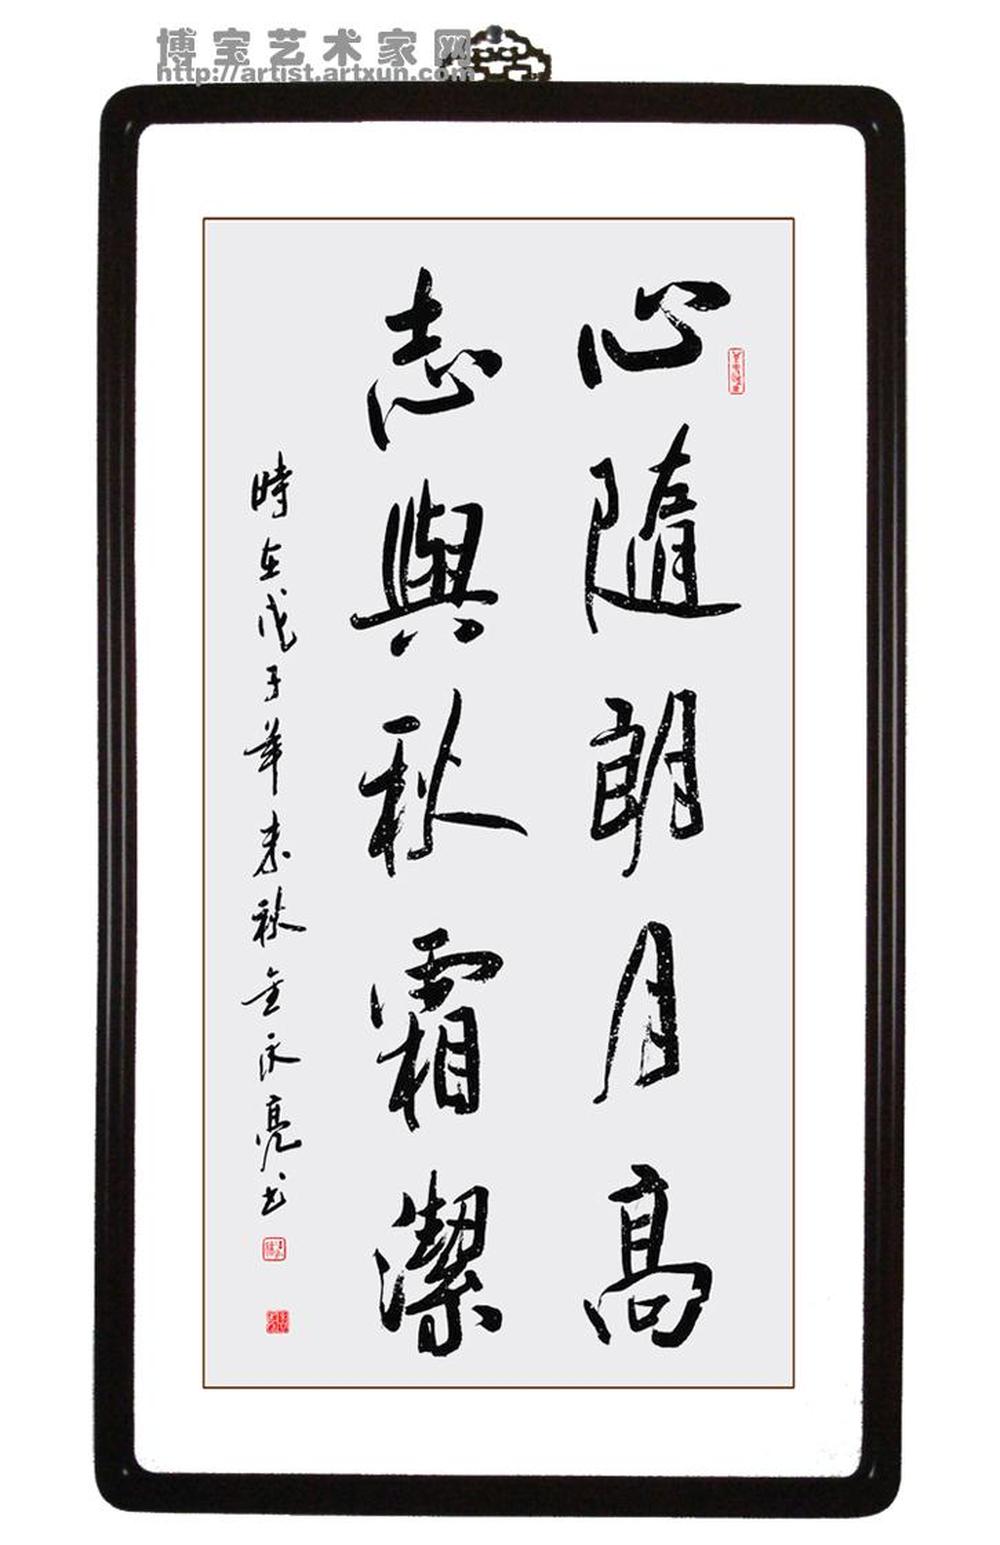 博宝艺术家网
http://artist.artxun.com
心隨朗月高
志與秋霜潔
時在戊子年末秋金永亮书